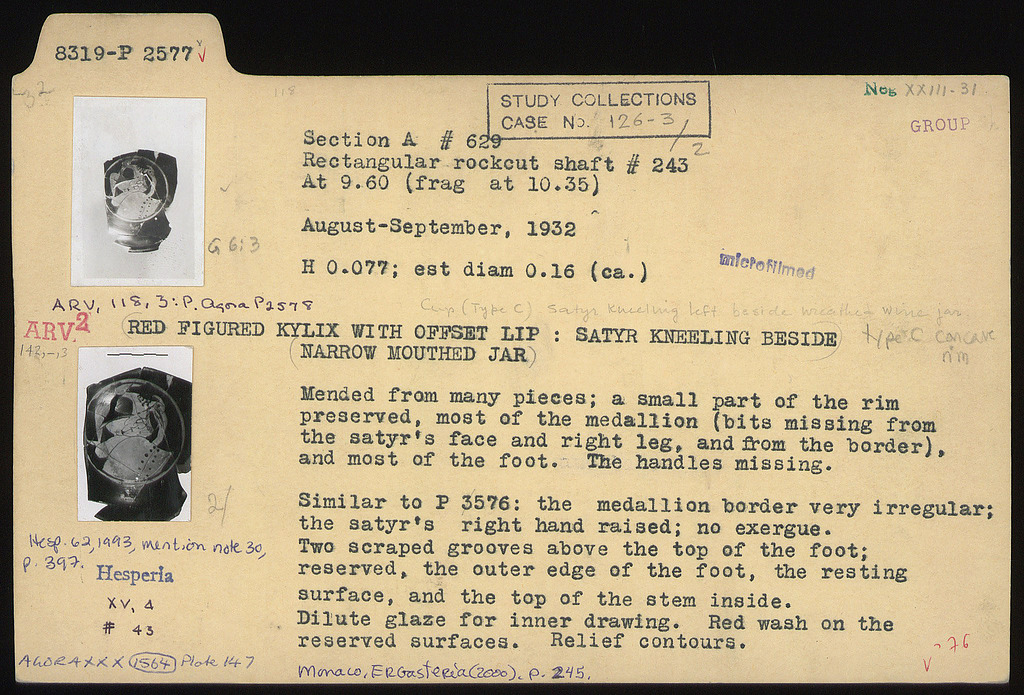 8319-P 2577 v
STUDY COLLECTIONS
CASE No. 126-3/2
Neg XXIII-31
GROUP
118
Section A # 629
Rectangular rockcut shaft # 243
At 9.60 (frag at 10.35)
August-September, 1932
G 6:3
H 0.077; est diam 0.16 (ca.)
microfilmed
ARV, 118, 3: P. Agora P2578
Cup (Type C) Satyr kneeling left beside wine jar.
ARV2
142,-,3
RED FIGURED KYLIX WITH OFFSET LIP : SATYR KNEELING BESIDE
(NARROW MOUTHED JAR)
type C concave
rim
Mended from many pieces; a small part of the rim
preserved, most of the medallion (bits missing from
the satyr's face and right leg, and from the border),
and most of the foot. The handles missing.
Similar to P 3576: the medallion border very irregular;
the satyr's right hand raised; no exergue.
Two scraped grooves above the top of the foot;
reserved, the outer edge of the foot, the resting
surface, and the top of the stem inside.
Dilute glaze for inner drawing. Red wash on the
reserved surfaces. Relief contours.
2/
Hesp. 62, 1993, mention note 30,
p. 397.
Hesperia
XV, 4
# 43
AGORA XXX 1564 Plate 147
Monaco, Ergasteria (2000), p. 245.
v 76